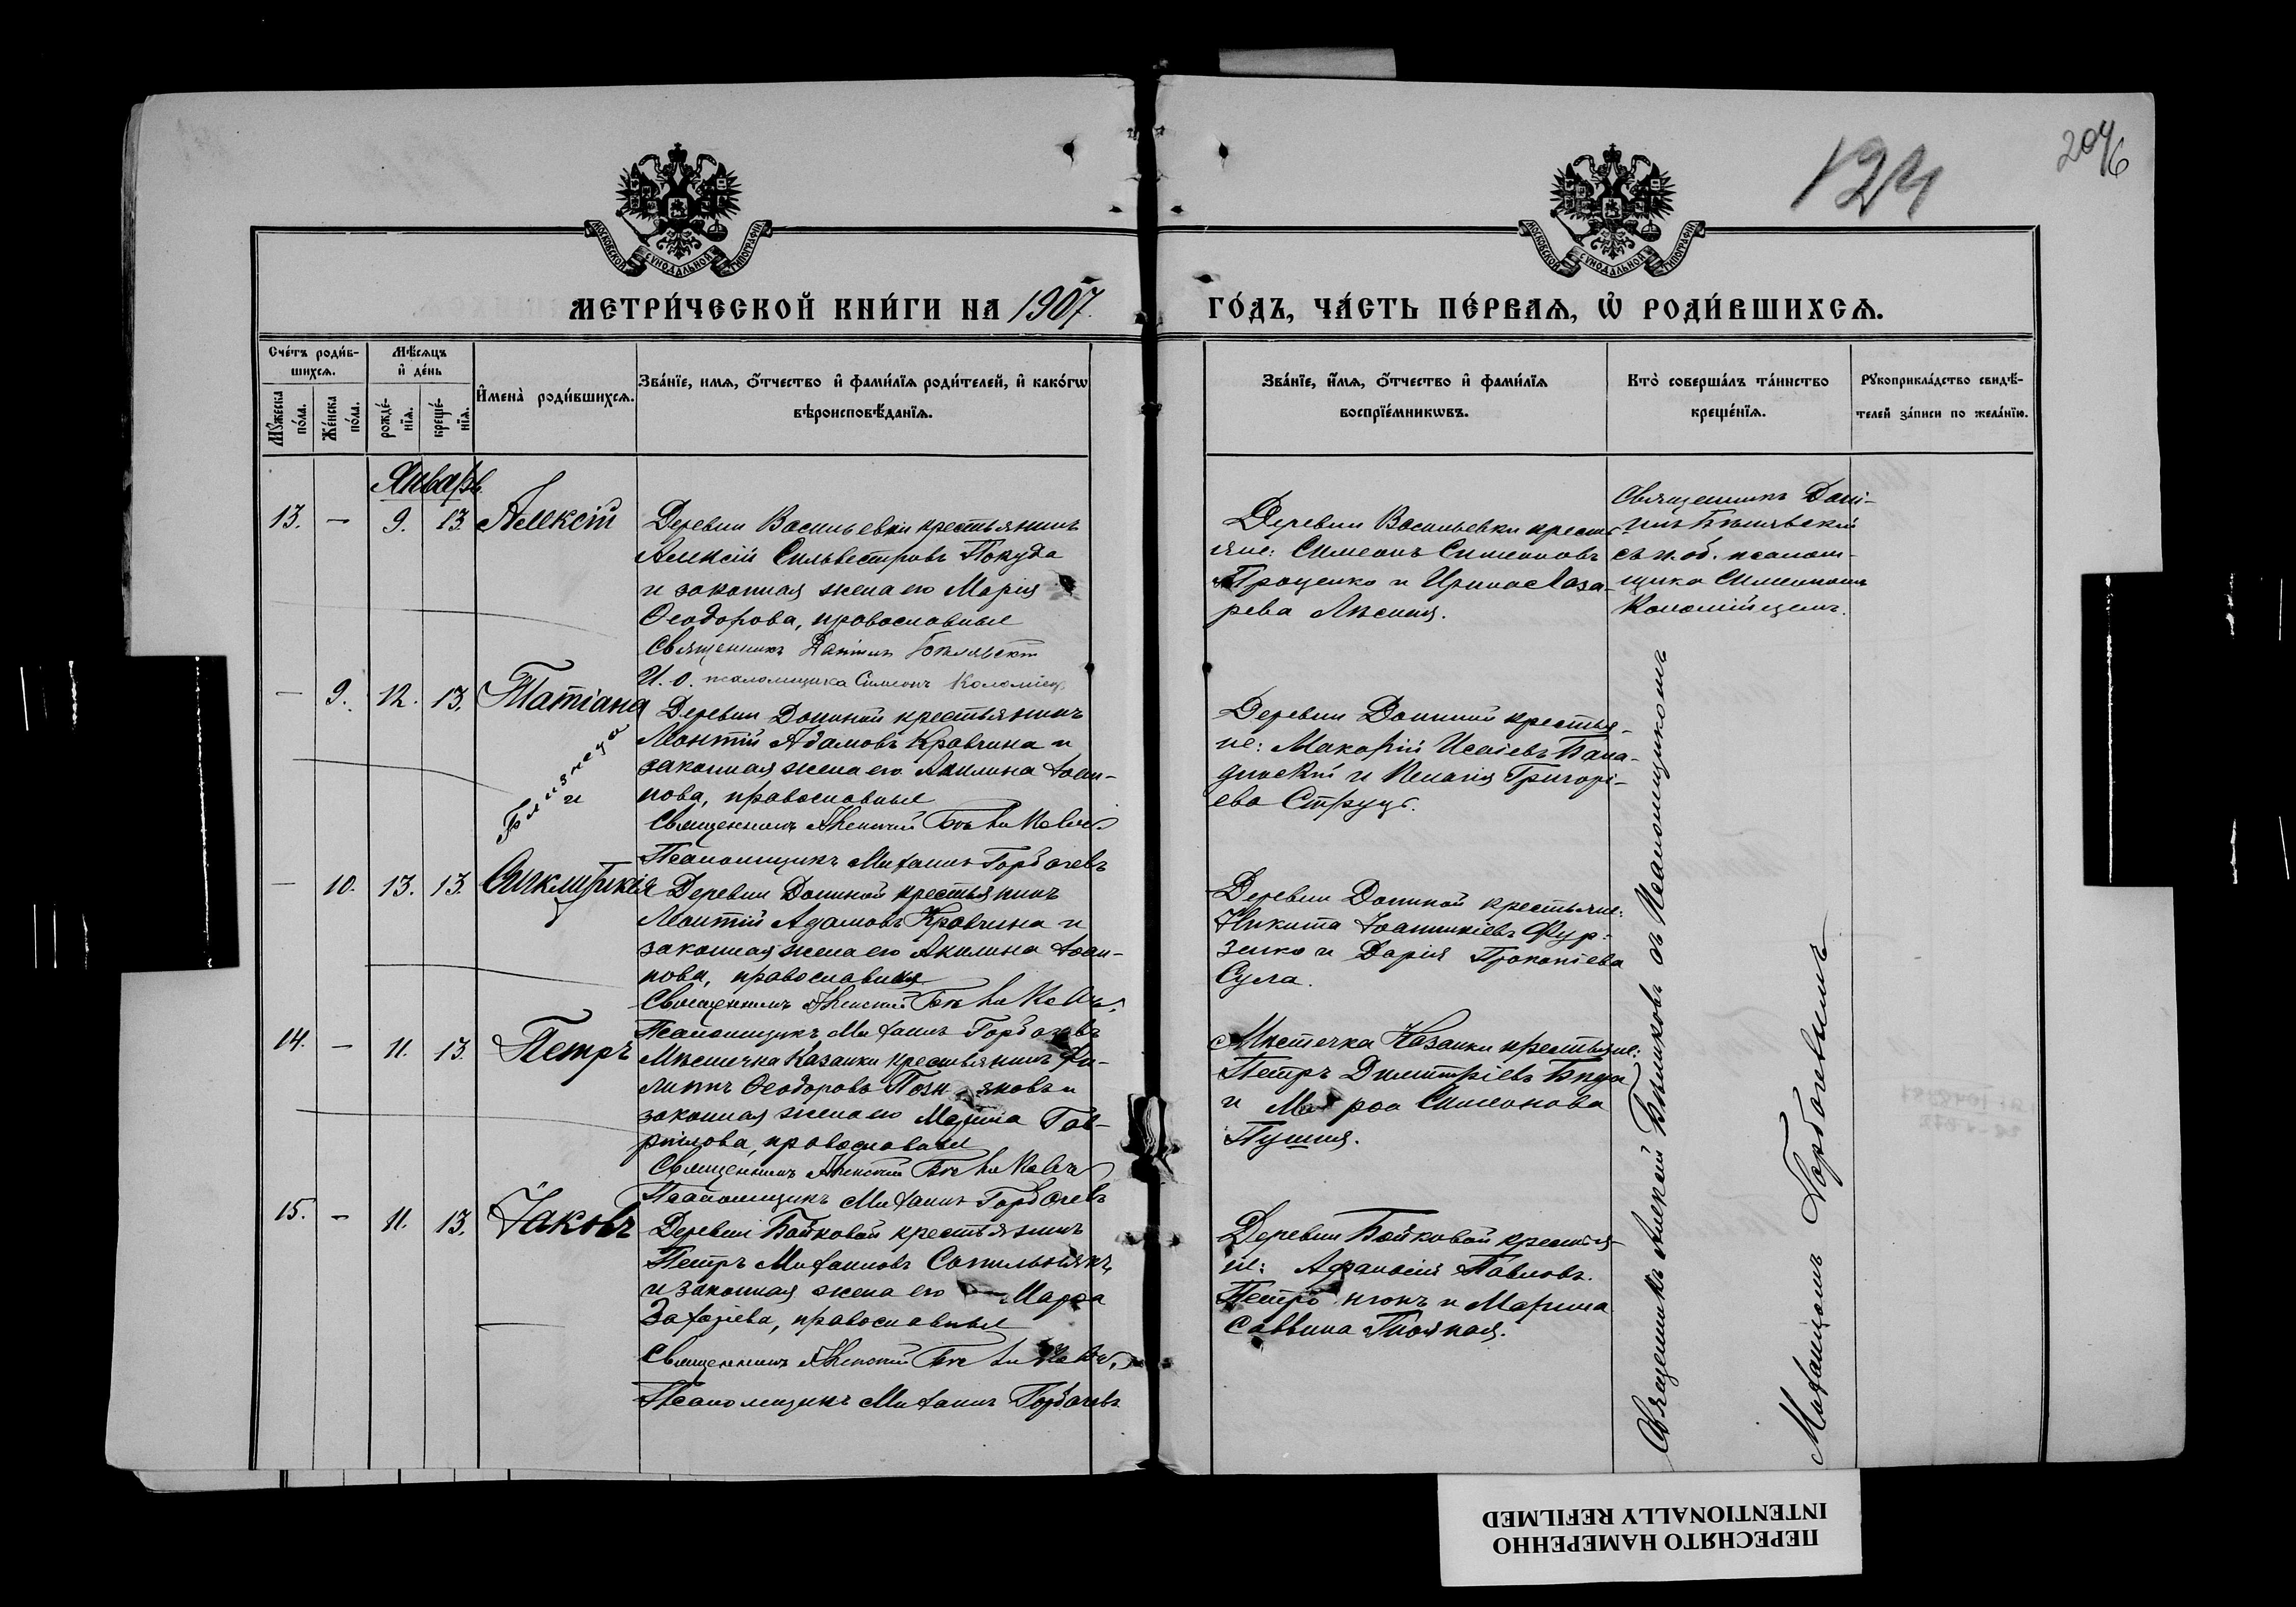 124
204/6
МОСКОВСКОЙ СУНОДАЛЬНОЙ ТИПОГРАФІИ
МОСКОВСКОЙ СУНОДАЛЬНОЙ ТИПОГРАФІИ
МЕТРИ́ЧЕСКОЙ КНИ́ГИ НА 1907.
ГО́ДЪ, ЧА́СТЬ ПЕ́РВАѦ, Ѡ҆ РОДИ́ВШИХСѦ.
Сче́тъ роди́в-
шихсѧ.
Мꙋ́жеска по́ла.
Же́нска по́ла.
Мѣ́сѧцъ
и҆ де́нь
рожде́-
нїѧ.
креще́-
нїѧ.
И҆мена̀ роди́вшихсѧ.
Зва́нїе, имѧ, ѻ҆́тчество и҆ фами́лїѧ роди́телей, и҆ како́гѡ
вѣроисповѣ́данїѧ.
Зва́нїе, и҆́мѧ, ѻ҆́тчество и҆ фами́лїѧ
воспрїе́мникѡвъ.
Кто̀ соверша́лъ та́инство
креще́нїѧ.
Рꙋкоприкла́дство свидѣ́-
телей за́писи по жела́нїю.
Январь
13. — 9. 13. Алексій
Деревни Васильевки крестьянинъ
Алексій Сильвестровъ Покуда
и законная жена его Марія
Ѳеодорова, православные
Священникъ Даніилъ Бѣлявскій
И. о. псаломщика Симеонъ Коломіецъ
Деревни Васильевки кресть-
яне: Симеонъ Симеоновъ
Проценко и Ирина Лаза-
рева Лясиня.
Священникъ Дані-
илъ Бѣлявскій
съ и. об. псалом-
щика Симеономъ
Коломійцемъ.
— 9. 12. 13. Татіана
Близнецы
и
Деревни Дониной крестьянинъ
Леонтій Адамовъ Кравчина и
законная жена его Акилина Іоан-
нова, православные
Священникъ Алексій Бѣликовъ
Псаломщикъ Михаилъ Горбачевъ
Деревни Дониной крестья-
не: Макарій Исаіевъ
и Пелагія Григорі-
ева Струцъ.
— 10. 13. 13. Синклитикія
Деревни Дониной крестьянинъ
Леонтій Адамовъ Кравчина и
законная жена его Акилина Іоан-
нова, православные
Священникъ Алексій Бѣликовъ
Псаломщикъ Михаилъ Горбачевъ
Деревни Дониной крестьяне:
Никита Іоанникіевъ Фур-
зенко и Дарія Прокопіева
Сула.
14. — 11. 13. Петръ
Мѣстечка Казанки крестьянинъ Фи-
липпъ Ѳеодоровъ Позняковъ и
законная жена его Марина Гав-
ріилова, православные
Священникъ Алексій Бѣликовъ
Псаломщикъ Михаилъ Горбачевъ
Мѣстечка Казанки крестьяне:
Петръ Димитріевъ
и Мавра Симеонова
15. — 11. 13. Іаковъ
Деревни Бойковой крестьянинъ
Петръ Михаиловъ Сопильнякъ
и законная жена его Марѳа
Захаріева, православные
Священникъ Алексій Бѣликовъ
Псаломщикъ Михаилъ Горбачевъ
Деревни Бойковой крестья-
не: Аѳанасій Павловъ
и Марина
Саввина
Священникъ Алексій Бѣликовъ съ Псаломщикомъ
Михаиломъ Горбачевымъ
ПЕРЕСНЯТО НАМЕРЕННО
INTENTIONALLY REFILMED